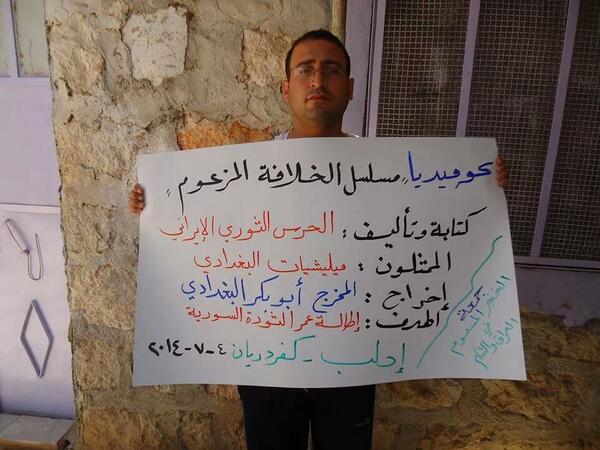 كوميديا "مسلسل الخلافة المزعوم"
كتابة وتأليف : الحرس الثوري الإيراني
الممثلون : ميليشيات البغدادي
إخراج : المخرج أبو بكر البغدادي
الهدف : إطالة عمر الثورة السورية
إدلب - كفردريان ٤-٧-٢٠١٤
الخنجر المسموم
في
العراق والشام